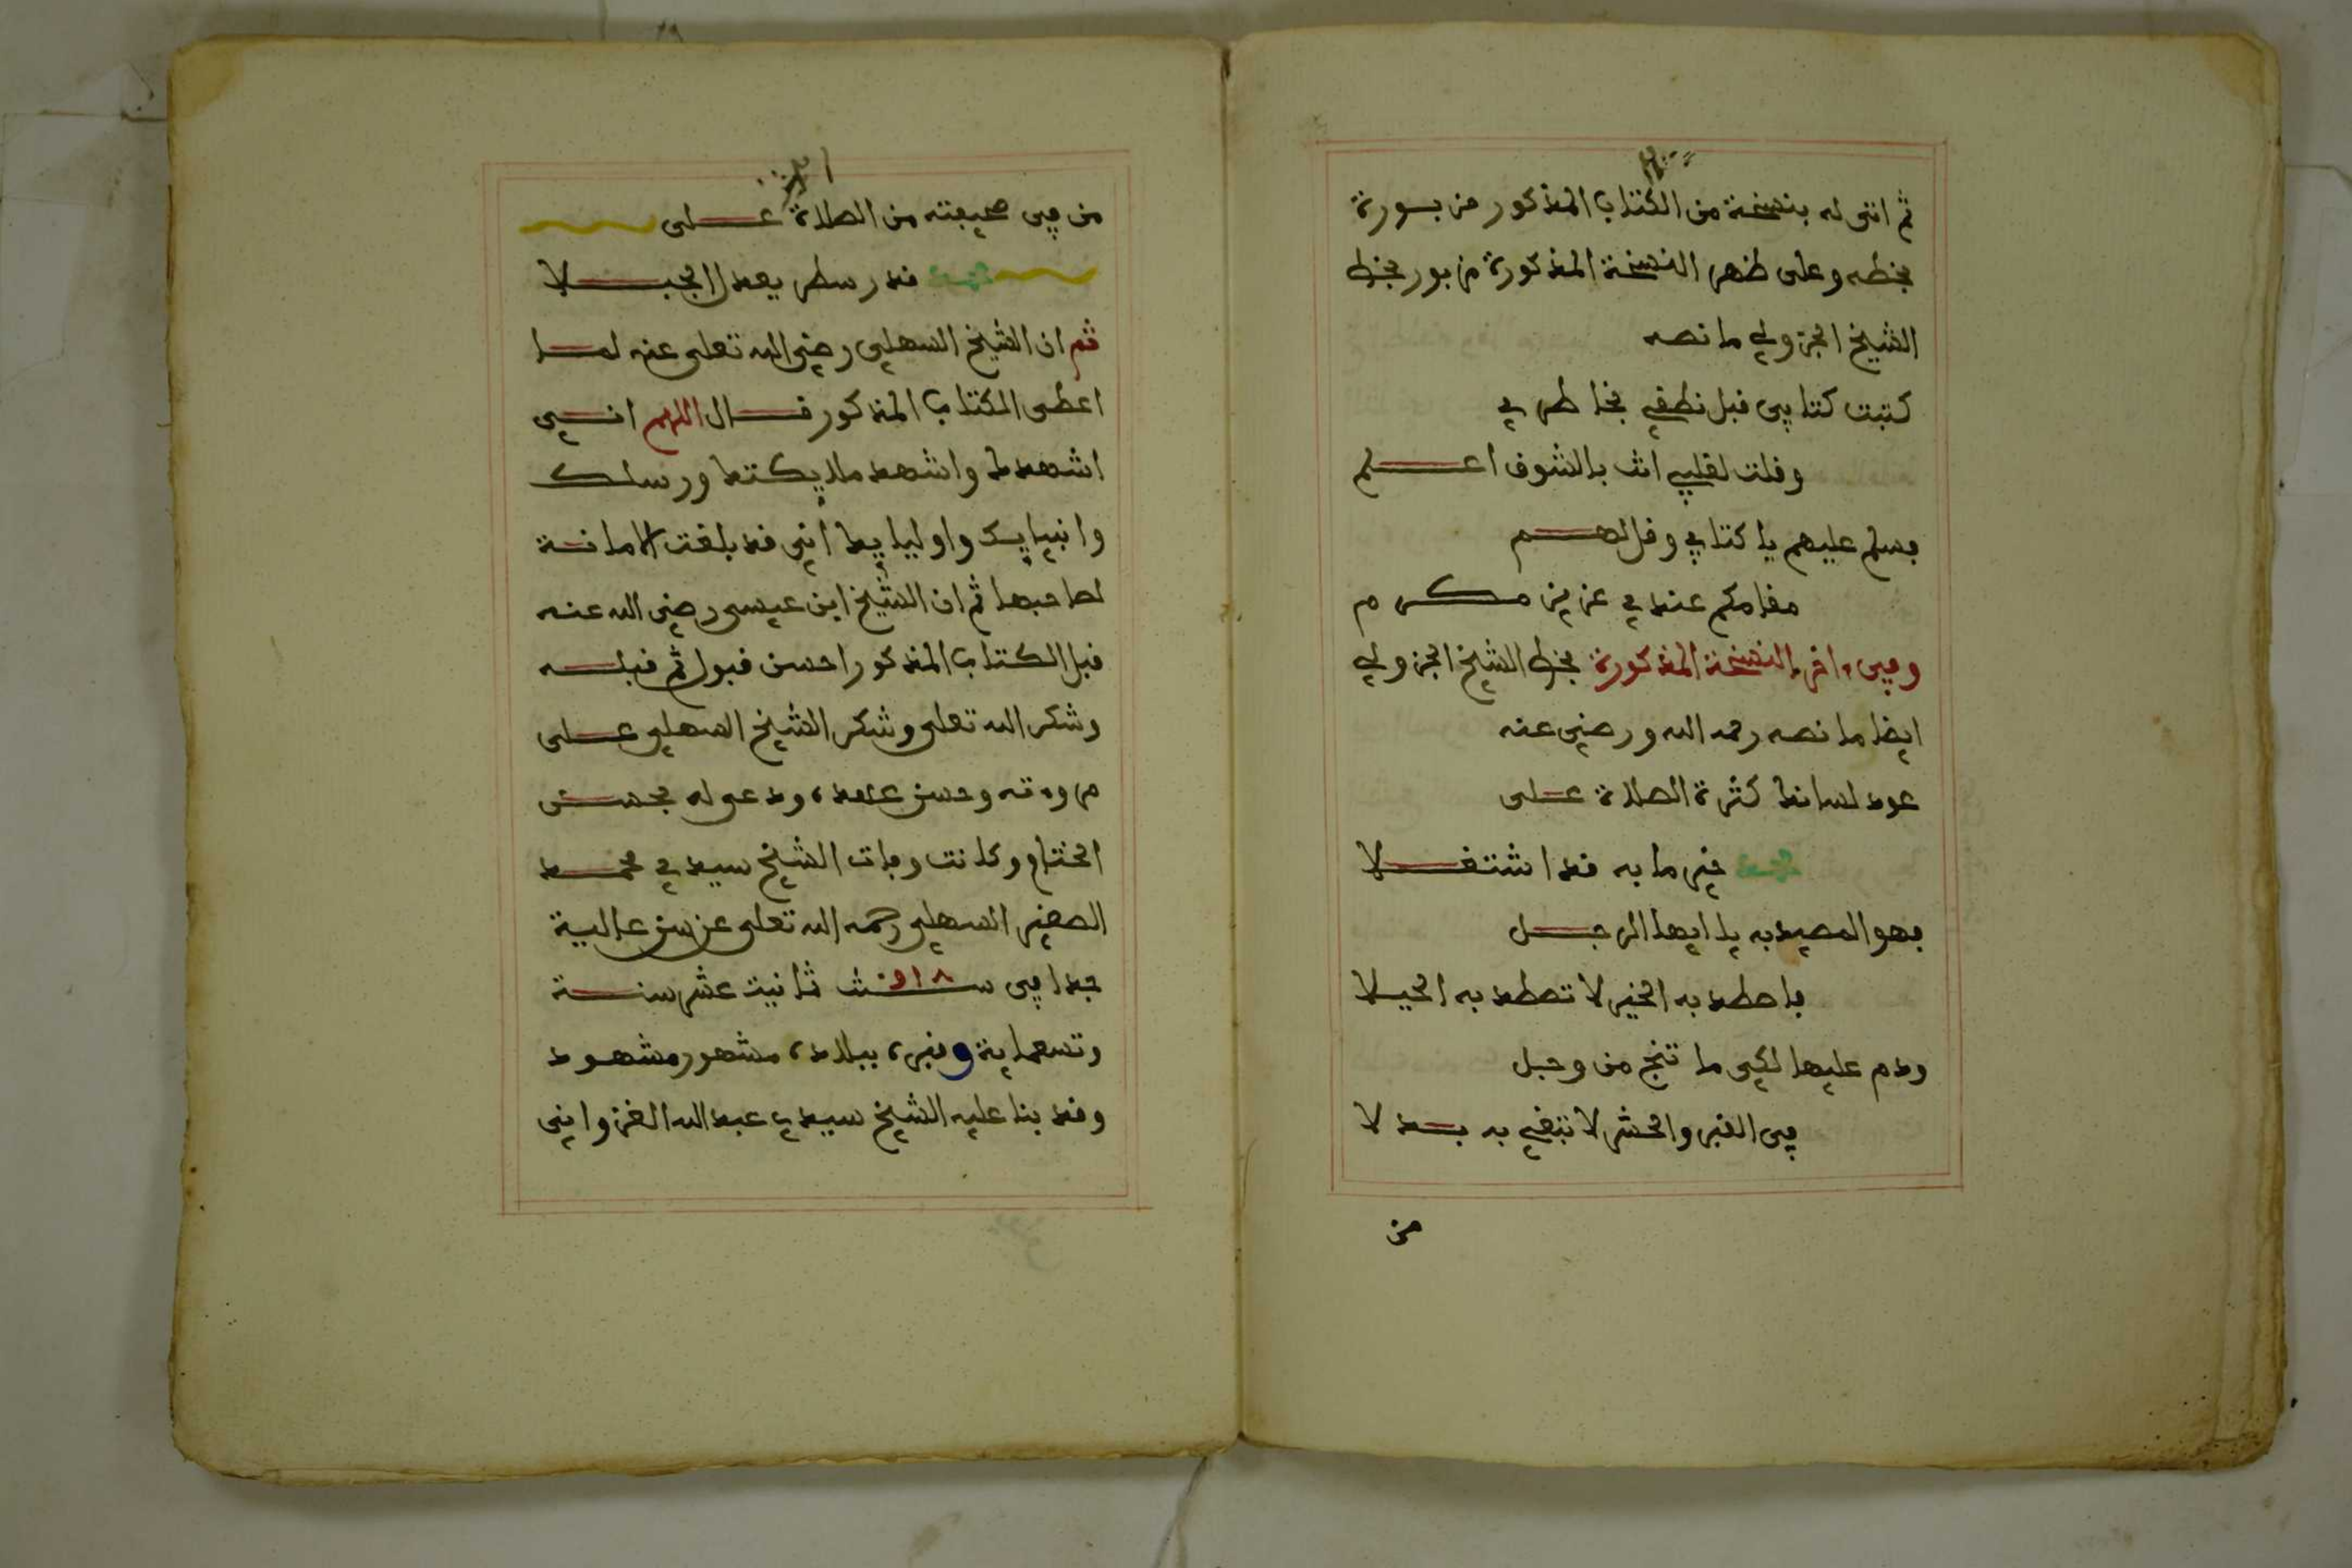 ثم اتى له بنسخة من الكتاب المذكور مزبورة
بخطه وعلى ظهر النسخة المذكورة مزبور بخط
الشيخ الجزولي ما نصه
كتبت كتابي قبل نطقي بخاطري
وقلت لقلبي انت بالشوق اعلم
فسلم عليهم يا كتابي وقل لهم
مقامكم عندي عزيز مكرم
وفي ءاخر النسخة المذكورة بخط الشيخ الجزولي
ايضا ما نصه رحمه الله ورضي عنه
عود لسانك كثرة الصلاة على
محمد خير ما به قد اشتغلا
فهو المصيد به يا ايها الرجل
فاصطد به الخير لا تصطد به الحيلا
ودم عليها لكي ما تنج من وجل
في القبر والحشر لا تبغي به بدلا
من
من في صحيفته من الصلاة على
محمد قدر سطر يعدل الجبلا
ثم ان الشيخ السهلي رضي الله تعلى عنه لما
اعطى الكتاب المذكور قال اللهم اني
اشهدك واشهد ملايكتك ورسلك
وانبيايك واوليايك اني قد بلغت الامانة
لصاحبها ثم ان الشيخ ابن عيسى رضي الله عنه
قبل الكتاب المذكور احسن قبول ثم قبله
وشكر الله تعلى وشكر الشيخ السهلي على
مروءته وحسن عهده ودعى له بحسن
الختام وكانت وفات الشيخ سيدي محمد
الصغير السهلي رحمه الله تعلى عن سن عالية
جدا في سنة ٩١٨ ثمانيت عشر سنة
وتسعماية وقبره ببلده مشهور مشهود
وقد بنا عليه الشيخ سيدي عبد الله الغزواني